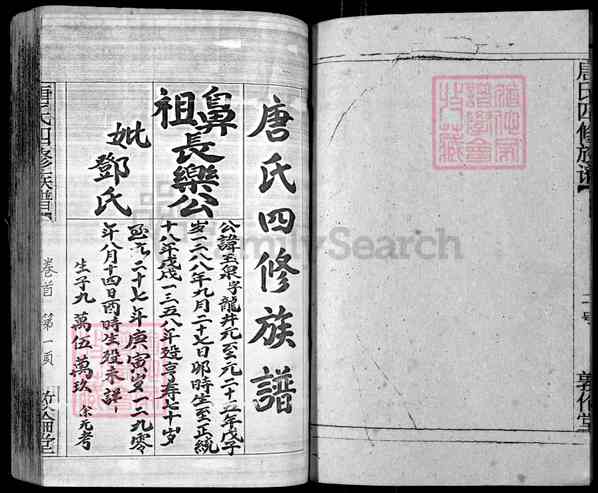 唐氏四修族譜
鼻祖長樂公
妣鄧氏
公諱玉泉字龍井元至元二十五年戊子
歲一二八八年九月二十七日卯時生至正統
十八年戊戌一三五八年歿亨寿七十岁
二十七年庚寅岁一二九零
年八月十四日丙時生殁未詳
生子九 萬伍 萬玖 余元考
唐氏四修族譜
卷首 第一頁
敦倫堂
唐氏四修族譜
敦倫堂
FamilySearch